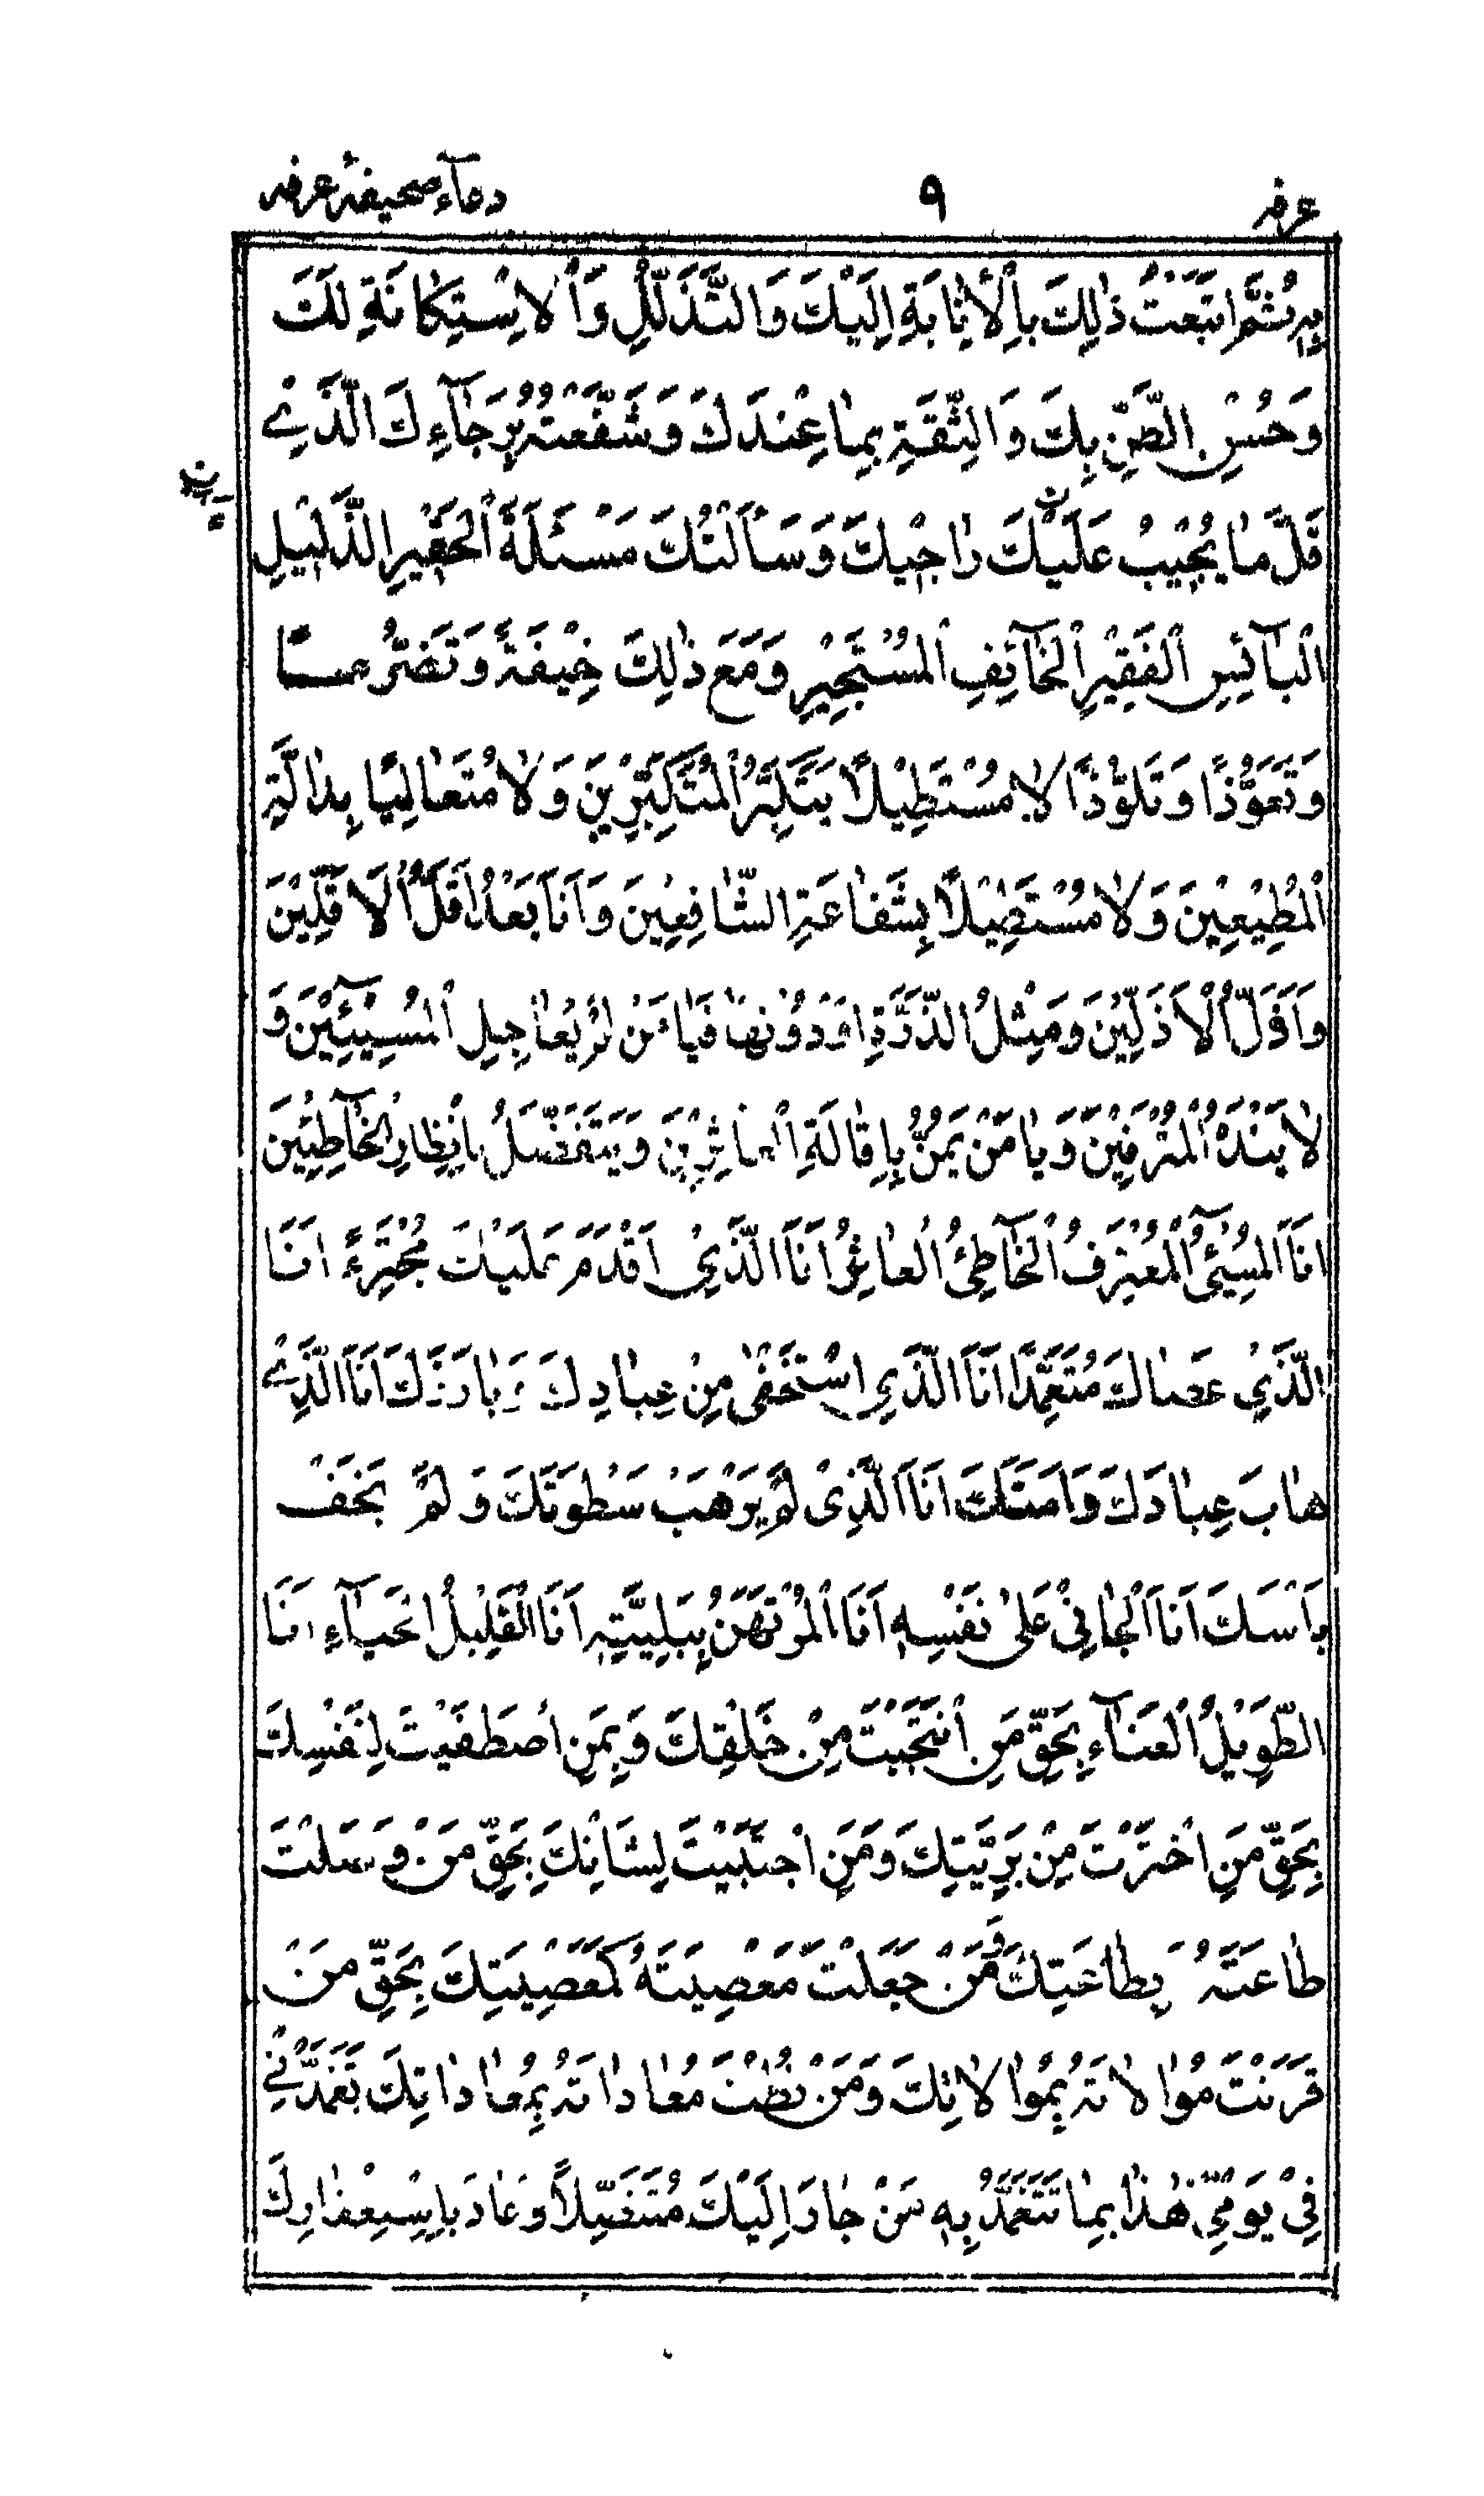 عرفہ ٩ دعآء صحیفہ عرفہ
بِهٖ ثُمَّ اَتْبَعْتُ ذٰلِكَ بِالْاِنَابَةِ اِلَيْكَ وَالتَّذَلُّلِ وَالْاِسْتِكَانَةِ لَكَ
وَحُسْنِ الظَّنِّ بِكَ وَالثِّقَةِ بِمٰا عِنْدَكَ وَشَفَّعْتُهُ بِرَجٰآءِكَ الَّذِيْ
قَلَّ مٰا يُخَيِّبُ عَلَيْكَ رٰاجِيْكَ وَسَأَلْتُكَ مَسْئَلَةَ الْحَقِيْرِ الذَّلِيْلِ
الْبٰآئِسِ الْفَقِيْرِ الْخٰآئِفِ الْمُسْتَجِيْرِ وَمَعَ ذٰلِكَ خِيْفَةً وَتَضَرُّعًا
وَتَعَوُّذًا وَتَلَوُّذًا لٰا مُسْتَطِيْلًا بِتَكَبُّرِ الْمُتَكَبِّرِيْنَ وَلٰا مُتَعٰالِيًا بِدٰالَّةِ
الْمُطِيْعِيْنَ وَلٰا مُسْتَطِيْلًا بِشَفٰاعَةِ الشّٰافِعِيْنَ وَاَنَا بَعْدُ اَقَلُّ الْاَقَلِّيْنَ
وَاَذَلُّ الْاَذَلِّيْنَ وَمِثْلُ الذَّرَّةِ اَوْ دُوْنَهٰا فَيٰا مَنْ لَمْ يُعٰاجِلِ الْمُسِيْئِيْنَ وَ
لٰا يَنْدَهُ الْمُتْرَفِيْنَ وَيٰا مَنْ يَمُنُّ بِاِقٰالَةِ الْعٰاثِرِيْنَ وَيَتَفَضَّلُ بِاِنْظٰارِ الْخٰاطِئِيْنَ
اَنَا الْمُسِيْٓئُ الْمُعْتَرِفُ الْخٰاطِئُ الْعٰاثِرُ اَنَا الَّذِيْ اَقْدَمَ عَلَيْكَ مُجْتَرِءً اَنَا
الَّذِيْ عَصٰاكَ مُتَعَمِّدًا اَنَا الَّذِي اسْتَخْفٰى مِنْ عِبٰادِكَ وَبٰارَزَكَ اَنَا الَّذِيْ
هٰابَ عِبٰادَكَ وَاَمِنَكَ اَنَا الَّذِىْ لَمْ يَرْهَبْ سَطْوَتَكَ وَلَمْ يَخَفْ
بَأْسَكَ اَنَا الْجٰانِيْ عَلٰى نَفْسِهٖ اَنَا الْمُرْتَهَنُ بِبَلِيَّتِهٖ اَنَا الْقَلِيْلُ الْحَيٰآءِ اَنَا
الطَّوِيْلُ الْعَنٰآءِ بِحَقِّ مَنِ انْتَجَبْتَ مِنْ خَلْقِكَ وَبِمَنِ اصْطَفَيْتَ لِنَفْسِكَ
بِحَقِّ مَنِ اخْتَرْتَ مِنْ بَرِيَّتِكَ وَمَنِ اجْتَبَيْتَ لِشَاْنِكَ بِحَقِّ مَنْ وَصَلْتَ
طٰاعَتَهُ بِطٰاعَتِكَ وَمَنْ جَعَلْتَ مَعْصِيَتَهُ كَمَعْصِيَتِكَ بِحَقِّ مَنْ
قَرَنْتَ مُوٰالٰاتَهُ بِمُوٰالٰاتِكَ وَمَنْ نُطْتَ مُعٰادٰاتَهُ بِمُعٰادٰاتِكَ تَغَمَّدْنِيْ
فِيْ يَوْمِيْ هٰذٰا بِمٰا تَتَغَمَّدُ بِهٖ مَنْ جٰارَ اِلَيْكَ مُتَنَصِّلًا وَعٰاذَ بِاسْتِغْفٰارِكَ